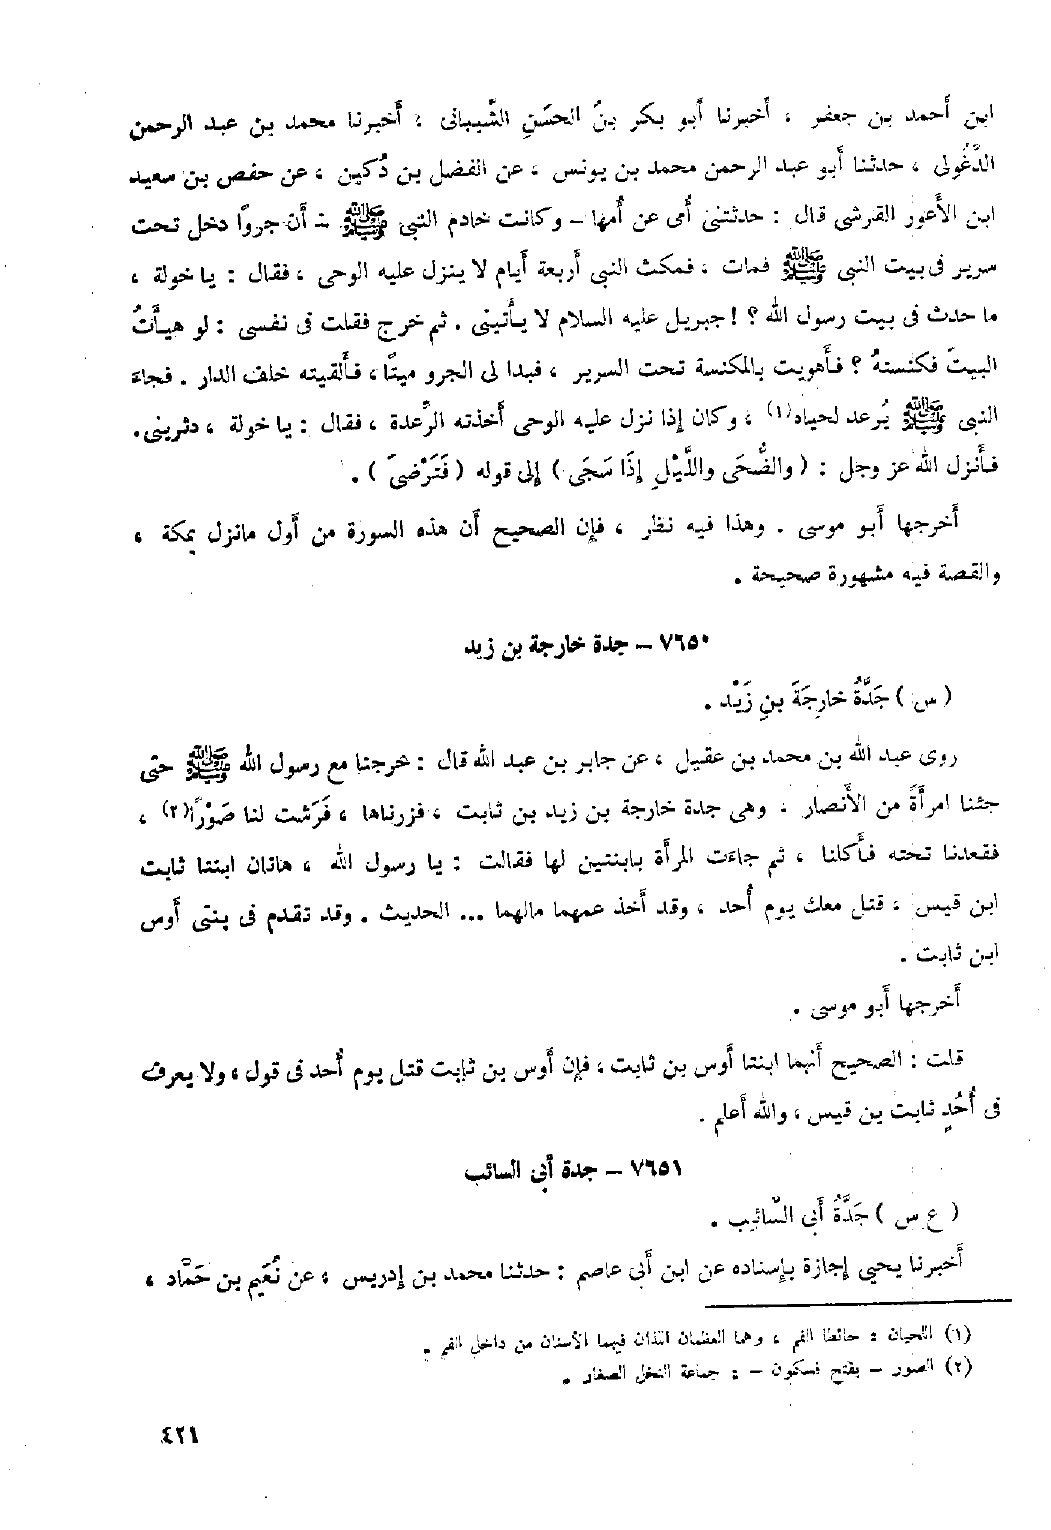 ابن أحمد بن جعفر ، أخبرنا أبو بكر بنُ الحسَنِ الشَّيبانى ، أخبرنا محمد بن عبد الرحمن
الدَّغُولى ، حدثنا أبو عبد الرحمن محمد بن يونس ، عن الفضل بن دُكين ، عن حفص بن سعيد
ابن الأَعور القرشى قال : حدثتنى أُمى عن أُمها – وكانت خادم النبى ﷺ – أن جروًا دخل تحت
سرير فى بيت النبى ﷺ فمات ، فمكث النبى أربعة أيام لا ينزل عليه الوحى ، فقال : يا خولة ،
ما حدث فى بيت رسول الله ؟ ! جبريل عليه السلام لا يأْتينى . ثم خرج فقلت فى نفسى : لو هيأْتُ
البيتَ فكنستهُ ؟ فأَهويت بالمكنسة تحت السرير ، فبدا لى الجرو ميتًا ، فأَلقيته خلف الدار . فجاءَ
النبى ﷺ يُرعد لحياه(١) ، وكان إذا نزل عليه الوحى أخذته الرِّعدة ، فقال : يا خولة ، دثرينى.
فأَنزل الله عز وجل : ( والضُّحَى واللَّيْلِ إذَا سَجَى ) إلى قوله ( فَتَرْضىَ ) .
أَخرجها أبو موسى . وهذا فيه نظر ، فإن الصحيح أن هذه السورة من أول مانزل بمكة ،
والقصة فيه مشهورة صحيحة .
٧٦٥٠ – جدة خارجة بن زيد
( س ) جَدَّةُ خارِجَةَ بنِ زَيْد .
روى عبد الله بن محمد بن عقيل ، عن جابر بن عبد الله قال : خرجنا مع رسول الله ﷺ حتى
جئنا امرأَةً من الأَنصار ، وهى جدة خارجة بن زيد بن ثابت ، فزرناها ، فَرَشت لنا صَوْرًا(٢) ،
فقعدنا تحته فأَكلنا ، ثم جاءَت المرأَة بابنتين لها فقالت : يا رسول الله ، هاتان ابنتا ثابت
ابن قيس ، قتل معك يوم أُحد ، وقد أخذ عمهما مالهما ... الحديث . وقد تقدم فى بنتى أَوس
ابن ثابت .
أَخرجها أبو موسى .
قلت : الصحيح أَنهما ابنتا أَوس بن ثابت ، فإن أَوس بن ثابت قتل يوم أُحد فى قول ، ولا يعرف
فى أُحُدٍ ثابت بن قيس ، والله أَعلم .
٧٦٥١ – جدة أبى السائب
( ع س ) جَدَّةُ أَبى السَّائِب .
أَخبرنا يحيى إجازة بإسناده عن ابن أَبى عاصم : حدثنا محمد بن إدريس ، عن نُعَيم بن حَمَّاد ،
(١) اللحيان : حائطا الفم ، وهما العظمان اللذان فيهما الأسنان من داخل الفم .
(٢) الصور – بفتح فسكون – : جماعة النخل الصغار .
٤٢١